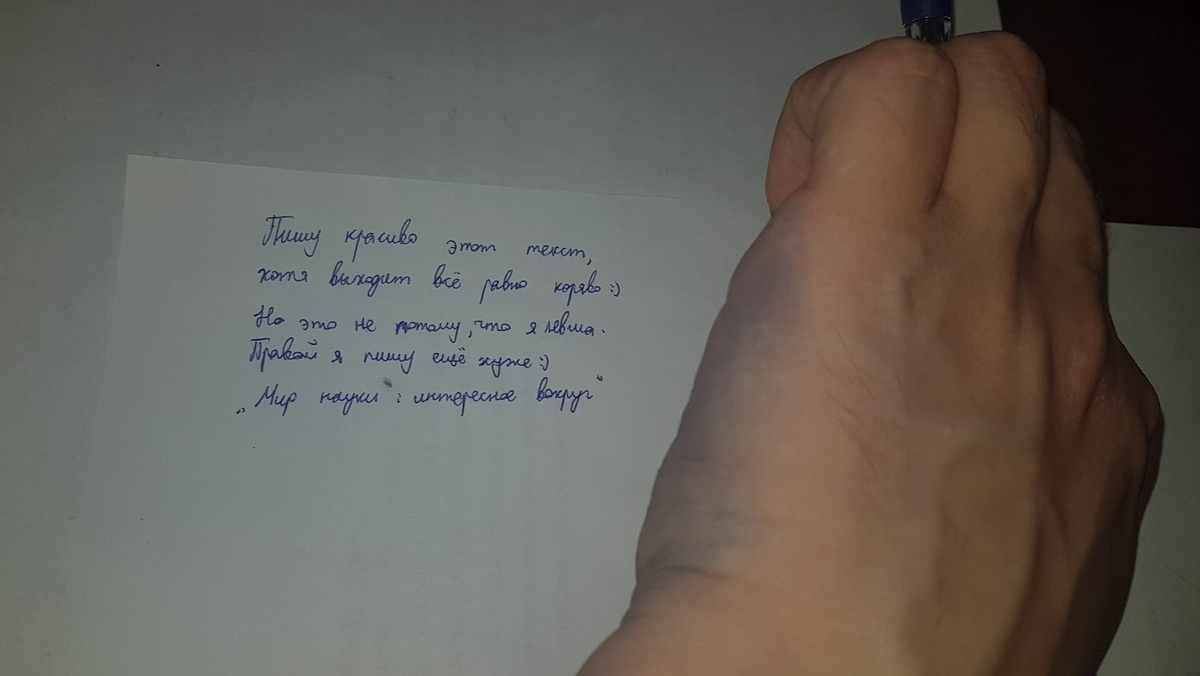 Пишу красиво этот текст,
хотя выходит всё равно коряво :)
Но это не потому, что я левша.
Правой я пишу ещё хуже :)
„Мир науки : интересное вокруг“